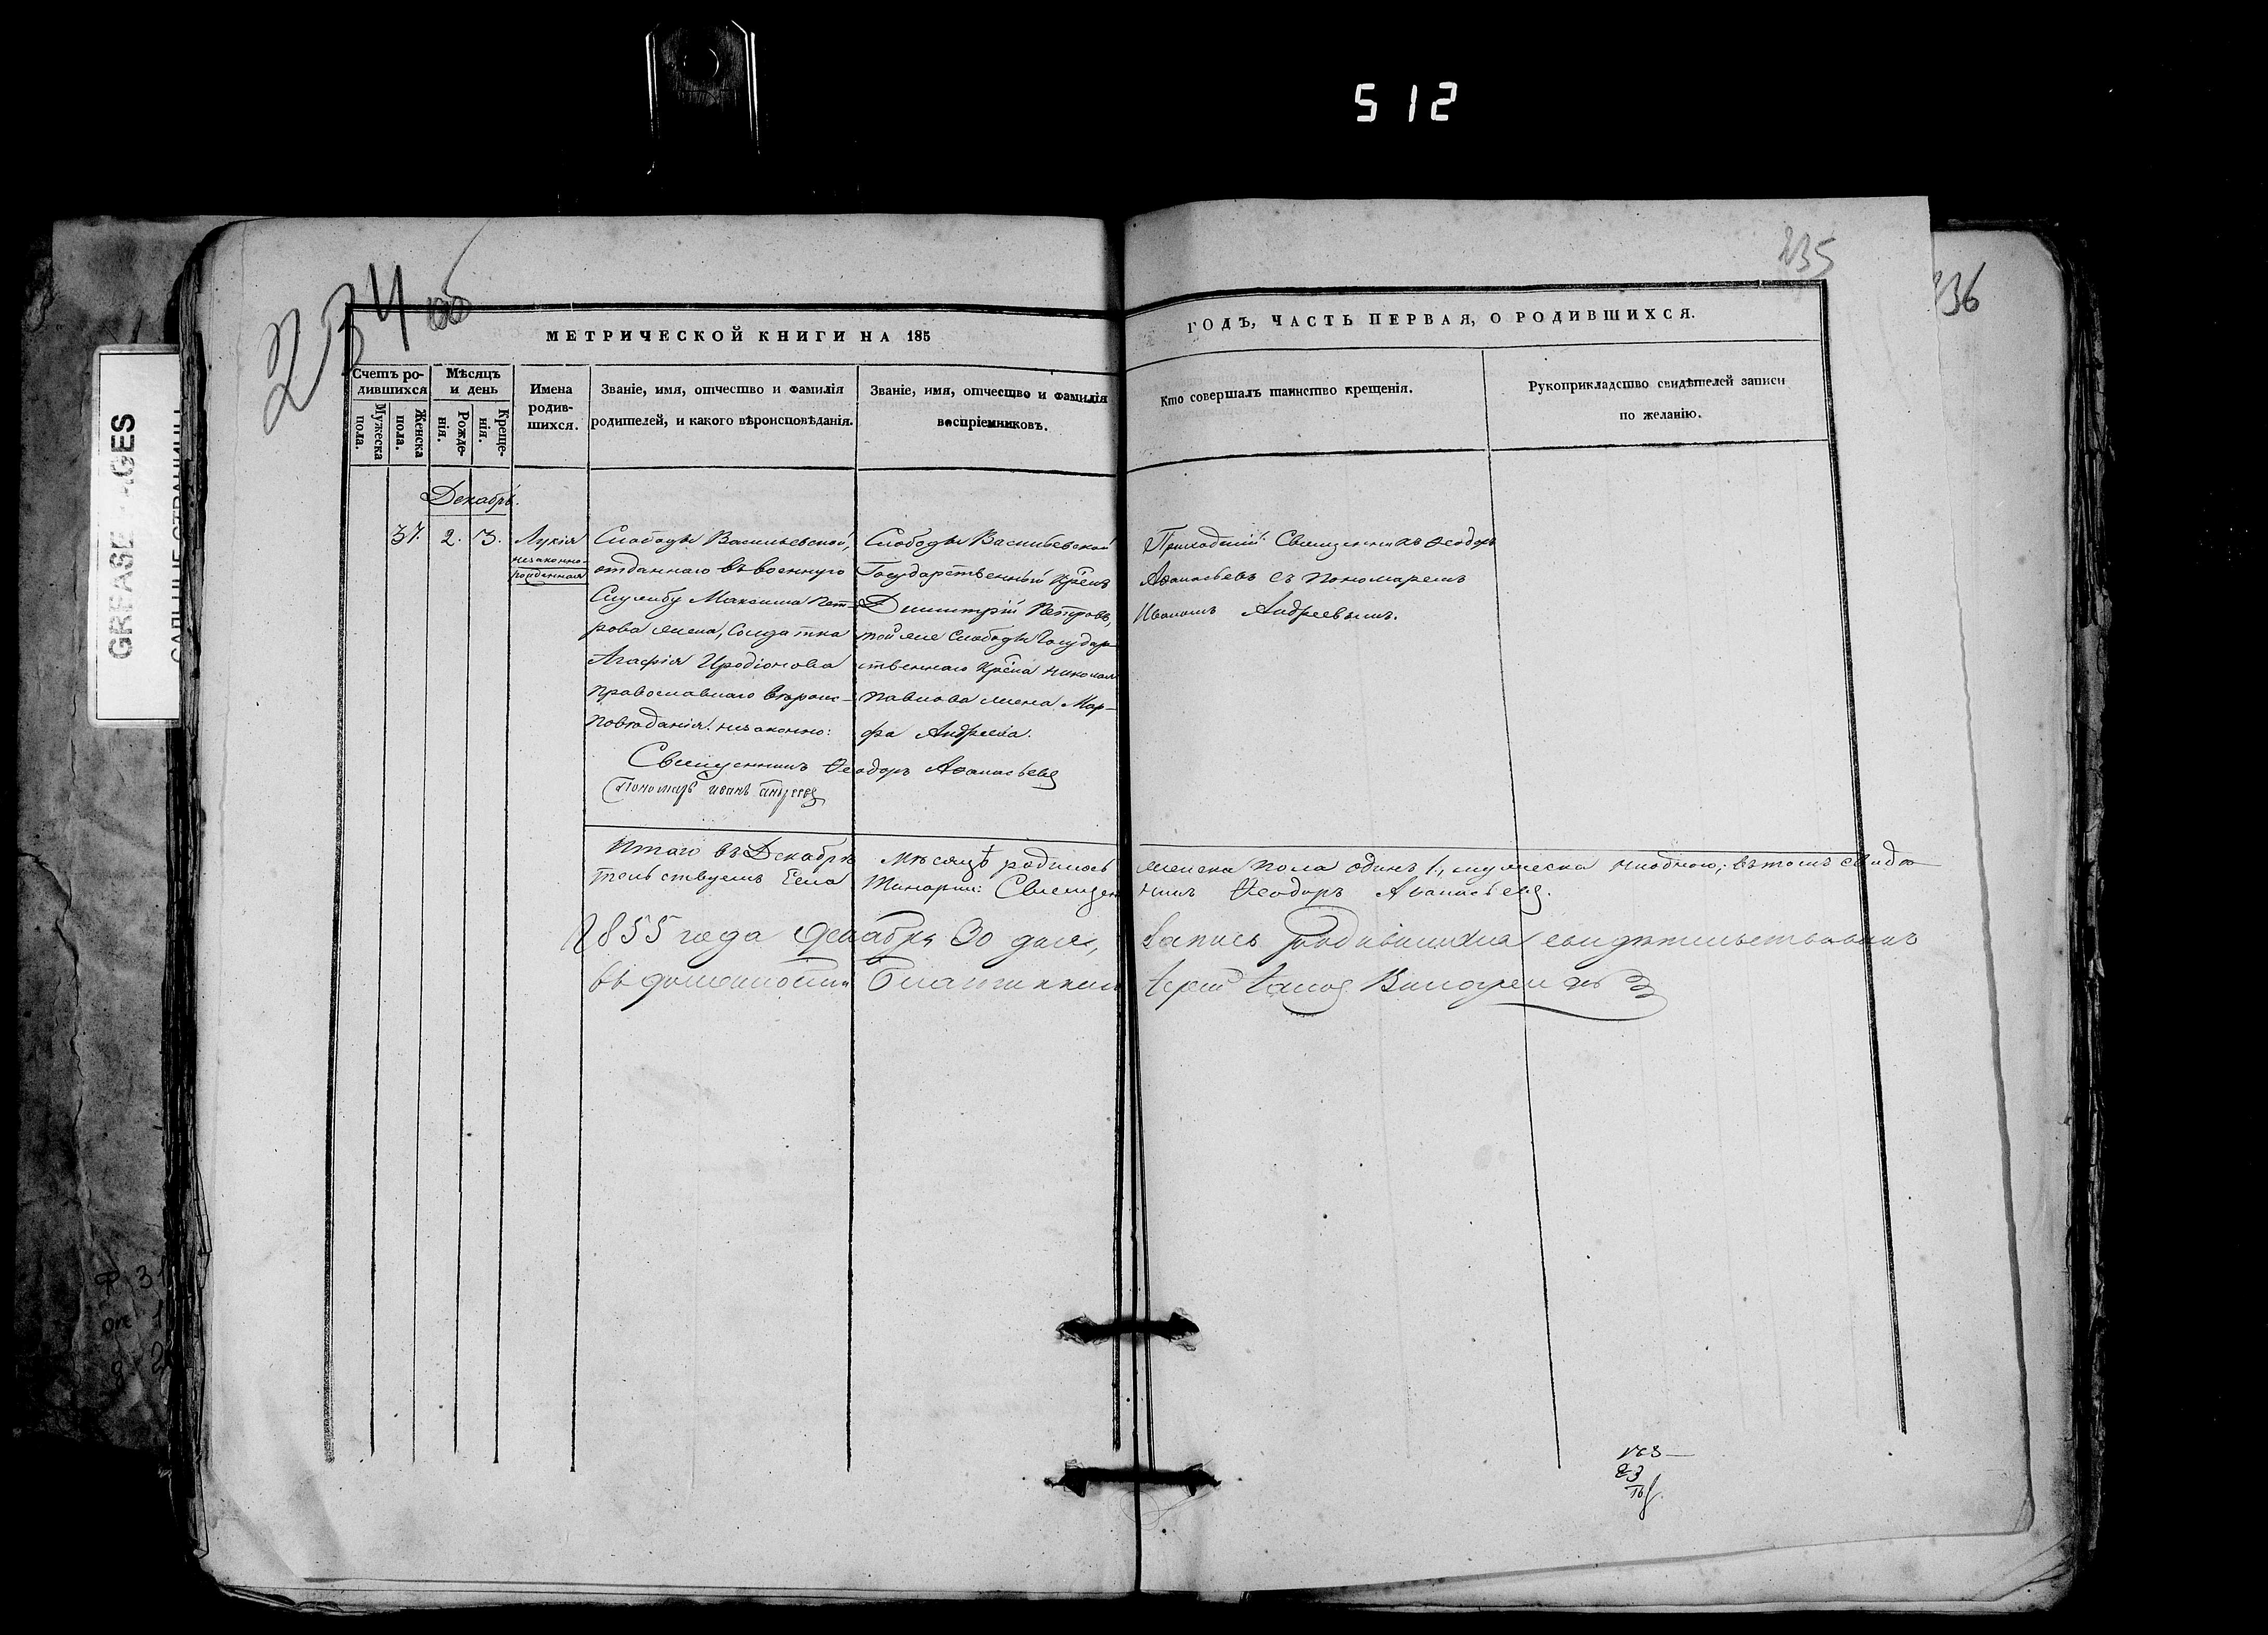 512
234 об
235
236
GREASE
МЕТРИЧЕСКОЙ КНИГИ НА 185
ГОДЪ, ЧАСТЬ ПЕРВАЯ, О РОДИВШИХСЯ.
Счетъ ро-
дившихся
Мужеска
пола.
Женска
пола.
Мѣсяцъ
и день
Рожде-
нія.
Креще-
нія.
Имена
родив-
шихся.
Званіе, имя, отчество и фамилія
родителей, и какого вѣроисповѣданія.
Званіе, имя, отчество и фамилія
воспріемниковъ.
Кто совершалъ таинство крещенія.
Рукоприкладство свидѣтелей записи
по желанію.
Декабрь.
37. 2. 3.
Лукія
незаконно-
рожденная
Слободы Васильевской,
отданнаго въ военную
Службу Максима Пет-
рова жена, Солдатка
Агафія Иродіонова
православнаго вѣроис-
повѣданія. незаконно:
Слободы Васильевской
Государственный Крѣнъ
Димитрій Петровъ,
той же Слободы Государ-
ственнаго Крѣна Николая
Павлова жена Мар-
фа Андреева.
Приходскій Священникъ Ѳеодоръ
Аѳанасьевъ съ пономаремъ
Иваномъ Андреевымъ.
Священникъ Ѳеодоръ Аѳанасьевъ
Пономарь Иванъ Андреевъ
Итого въ Декабрѣ Мѣсяцѣ родилось женска пола одинъ 1., мужеска ни одного; въ томъ свидѣ-
тельствуемъ Села Священникъ Ѳеодоръ Аѳанасьевъ.
1855 года Декабря 30 дня, Запись родившихся свидѣтельствовалъ
въ должности Благочиннаго